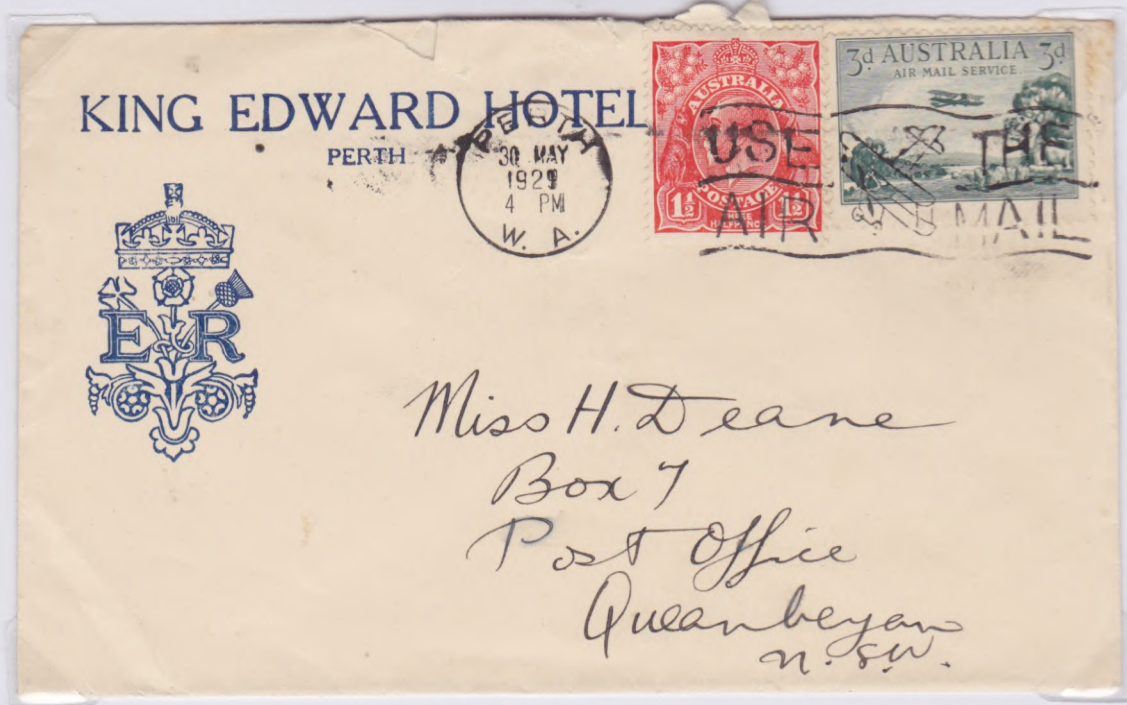 KING EDWARD HOTEL
PERTH
E R
PERTH
30 MAY
1929
4 PM
W. A.
AUSTRALIA
POSTAGE
1½ 1½
THREE
HALFPENCE
3d AUSTRALIA 3d
AIR MAIL SERVICE
USE THE
AIR MAIL
Miss H. Deane
Box 7
Post Office
Queanbeyan
N.S.W.